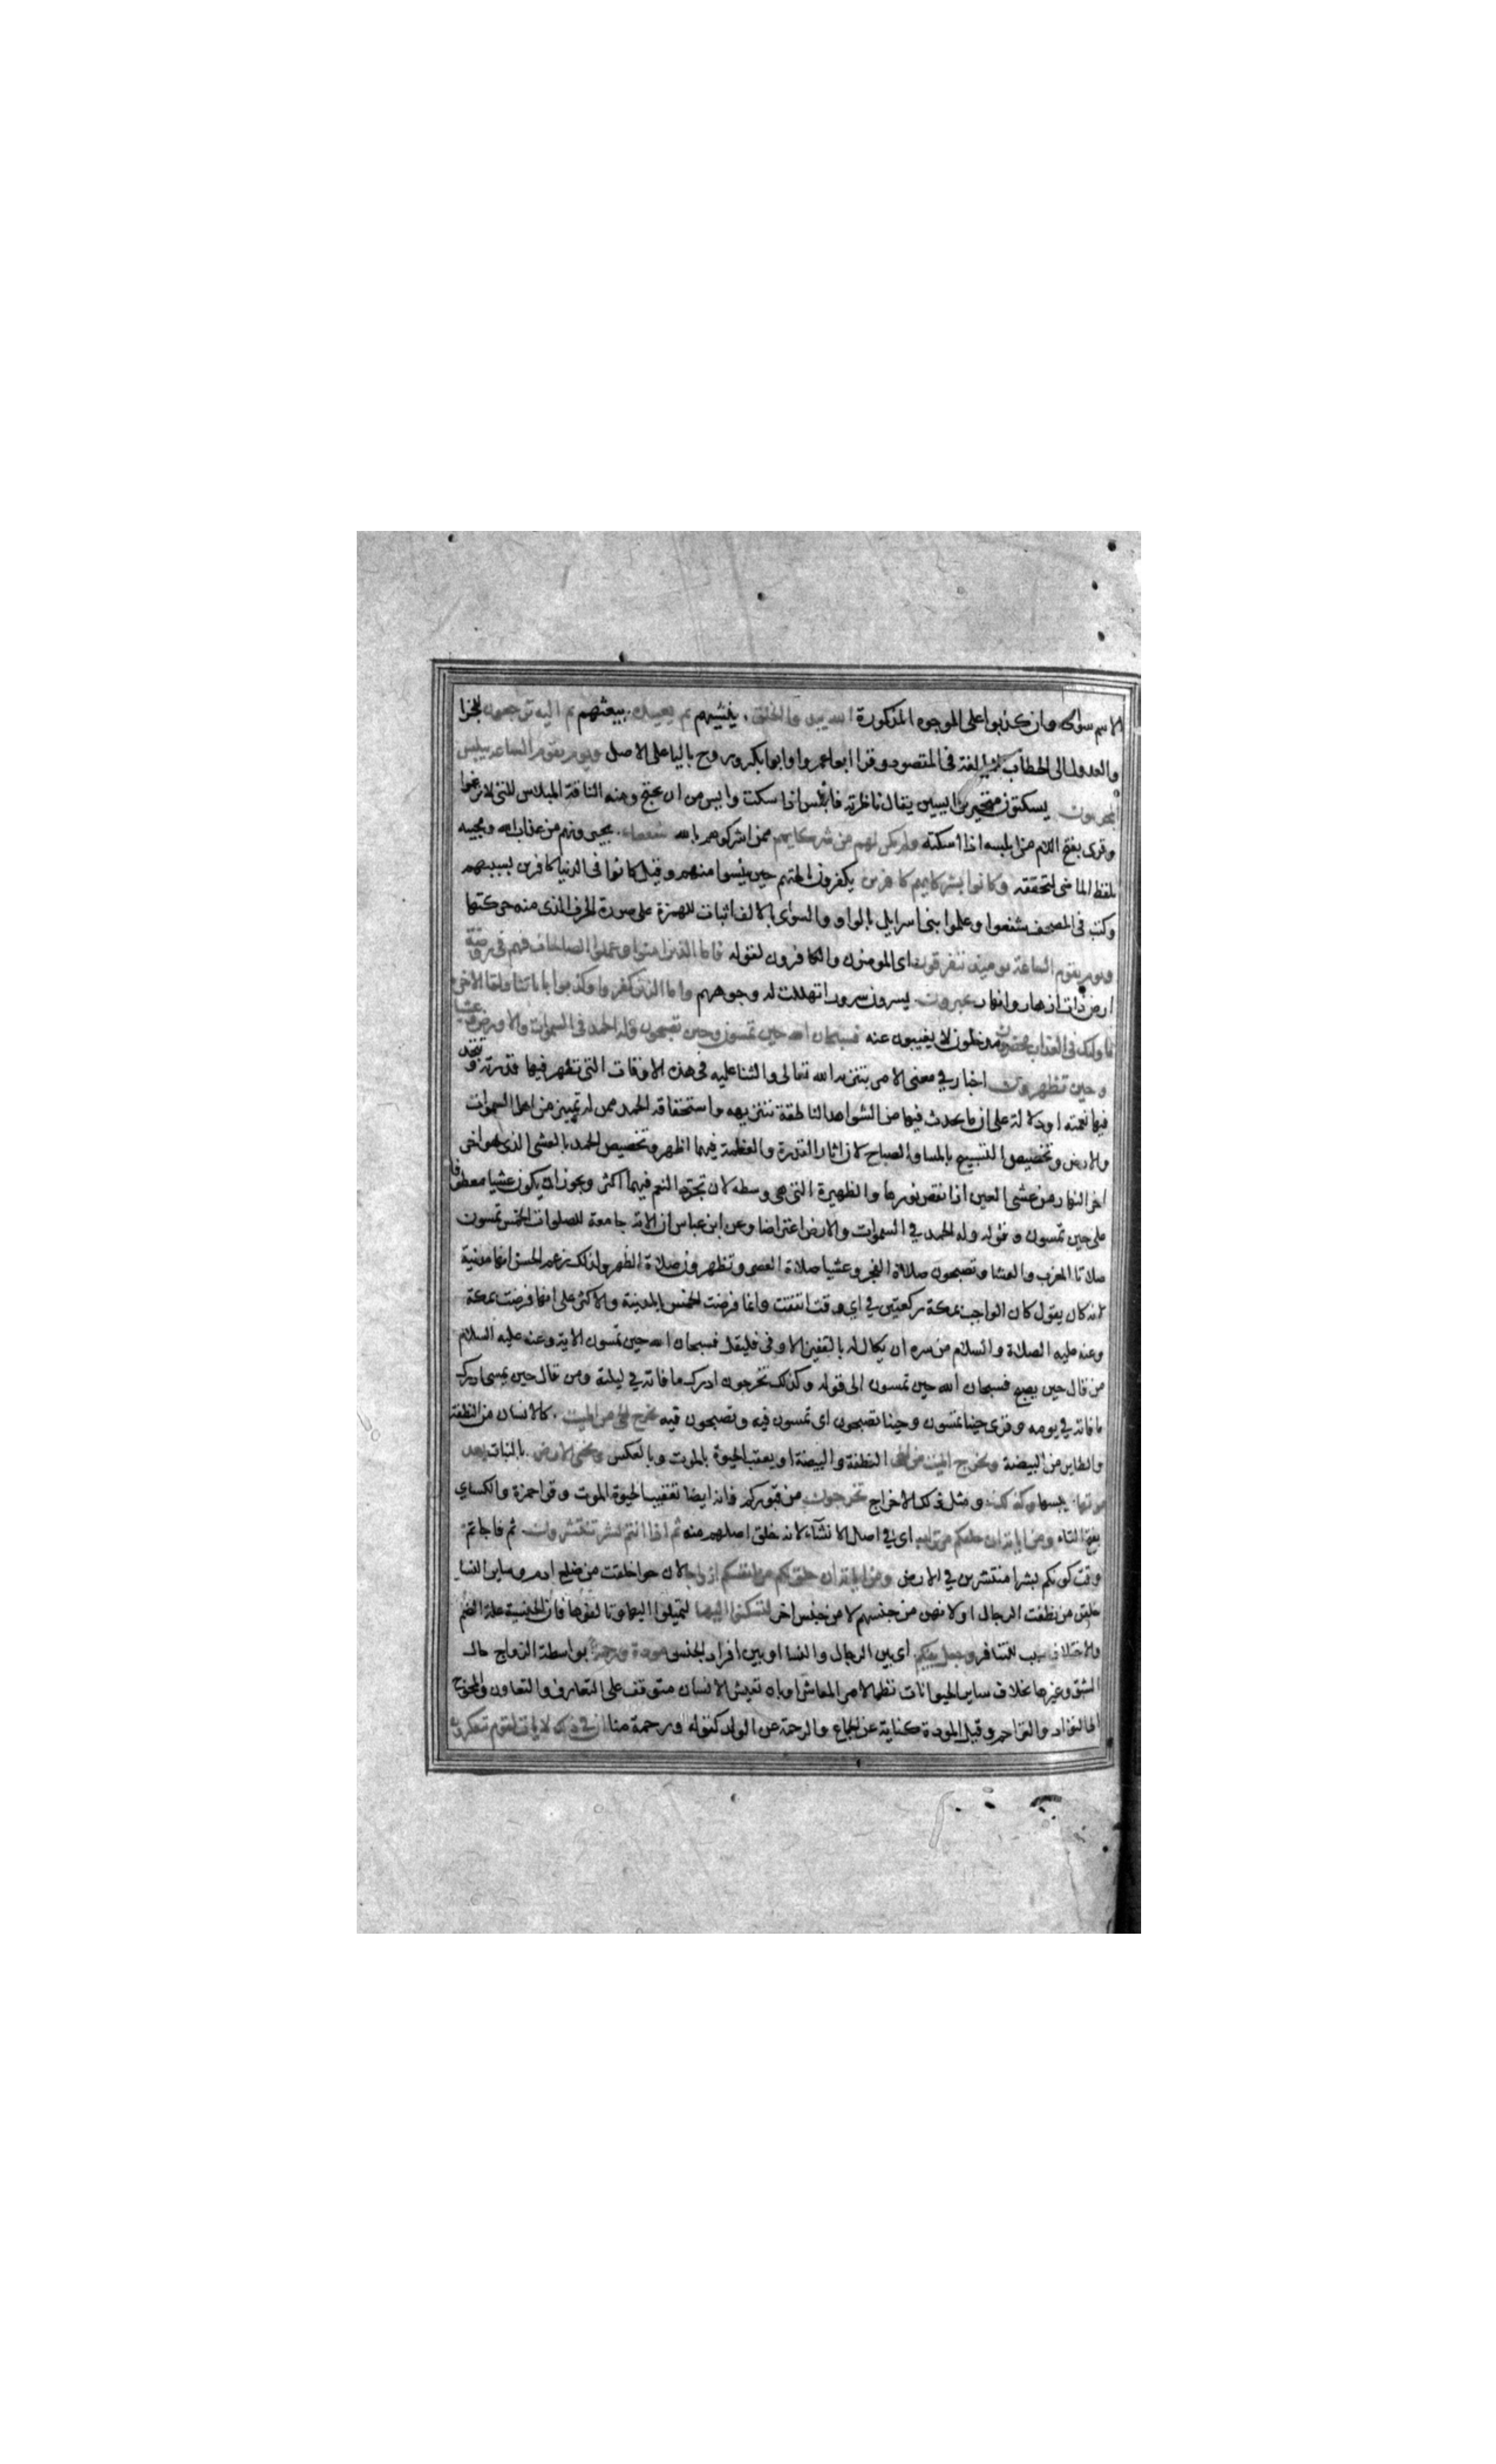 الاسم سواى وان كذبوا على الوجوه المذكورة الله يبدو الخلق ينشيهم ثم يعيده يبعثهم ثم اليه ترجعون للجزا
والعدول الى الخطاب للمبالغة فى المقصود وقرا ابو عمرو وابو بكر وروح باليا على الاصل ويوم يقوم الساعة يبلس
المجرمون يسكتون متحيرين ايسين يقال ناظرته فابلس اذا سكت وايس من ان يحتج ومنه الناقة المبلاس للتى لا ترغوا
وقرى بفتح اللام من ابلسه اذا اسكته ولم يكن لهم من شركايهم ممن اشركوهم بالله شفعاء يجيرونهم من عذاب الله ومجيه
بلفظ الماضى لتحققه وكانوا بشركايهم كافرين يكفرون بالهتهم حين يئسوا منهم وقيل كانوا فى الدنيا كافرين بسببهم
وكتب فى المصحف شفعوا وعلموا بنى اسرايل بالواو والسواى بالالف اثبات للهمزة على صورة الحرف الذى منه حركتها
ويوم يقوم الساعة يوميذ يتفرقون اى المومنون والكافرون لقوله فاما الذين امنوا وعملوا الصالحات فهم فى روضة
ارض ذات ازهار وانهار يحبرون يسرون سرورا تهللت له وجوههم واما الذين كفروا وكذبوا باياتنا ولقا الاخرة
فاوليك فى العذاب محضرون مدخلون لا يغيبون عنه فسبحان الله حين تمسون وحين تصبحون وله الحمد فى السموات والارض وعشيا
وحين تظهرون اخبار في معنى الامر بتنزيه الله تعالى والثنا عليه فى هذه الاوقات التى تظهر فيها قدرته وتتجدد
فيها نعمته او دلالة على ان ما يحدث فيها من الشواهد الناطقة بتنزيهه واستحقاقه الحمد ممن له تمييز من اهل السموات
والارض وتخصيص التسبيح بالمسا والصباح لان اثار القدرة والعظمة فيهما اظهر وتخصيص الحمد بالعشى الذى هو اخر
اخر النهار من عشى العين اذا نقص نورها والظهيرة التى هى وسطه لان تجدد النعم فيهما اكثر ويجوز ان يكون عشيا معطوفا
على حين تمسون وقوله وله الحمد في السموات والارض اعتراضا وعن ابن عباس ان الاية جامعة للصلوات الخمس تمسون
صلاتا المغرب والعشا وتصبحون صلاة الفجر وعشيا صلاة العصر وتظهرون صلاة الظهر ولذلك زعم الحسن انها مدنية
لانه كان يقول كان الواجب بمكة ركعتين في اي وقت اتفقت وانما فرضت الخمس بالمدينة والاكثر على انها فرضت بمكة
وعنه عليه الصلاة والسلام من سره ان يكال له بالقفيز الاوفى فليقل فسبحان الله حين تمسون الاية وعنه عليه السلام
من قال حين يصبح فسبحان الله حين تمسون الى قوله وكذلك تخرجون ادرك ما فاته في ليلته ومن قال حين يمسى ادرك
ما فاته في يومه وقرى حينا تمسون وحينا تصبحون اى تمسون فيه وتصبحون فيه يخرج الحى من الميت كالانسان من النطفة
والطاير من البيضة ويخرج الميت من الحى النطفة والبيضة او يعقب الحيوة بالموت وبالعكس ويحي الارض بالنبات بعد
موتها يبسها وكذلك ومثل ذلك الاخراج تخرجون من قبوركم فانه ايضا تعقيب الحيوة الموت وقرا حمزة والكساي
بفتح التاء ومن اياته ان خلقكم من تراب اى في اصل الانشآء لانه خلق اصلهم منه ثم اذا انتم بشر تنتشرون ثم فاجاتم
وقت كونكم بشرا منتشرين في الارض ومن اياته ان خلق لكم من انفسكم ازواجا لان حوا خلقت من ضلع ادم وساير النسا
خلقن من نطفت الرجال او لانهن من جنسهم لا من جنس اخر لتسكنوا اليها لتميلوا اليها وتالفوها فان الجنسية علة الضم
والاختلاف سبب للتنافر وجعل بينكم اى بين الرجال والنسا او بين افراد الجنس مودة ورحمة بواسطة الزواج حال
الشبق وغيرها بخلاف ساير الحيوانات نظما لامر المعاش او بان تعيش الانسان متوقف على التعارف والتعاون والمحوج
الى التواد والتراحم وقيل المودة كناية عن الجماع والرحمة عن الولد كقوله ورحمة منا ان في ذلك لايات لقوم يتفكرون